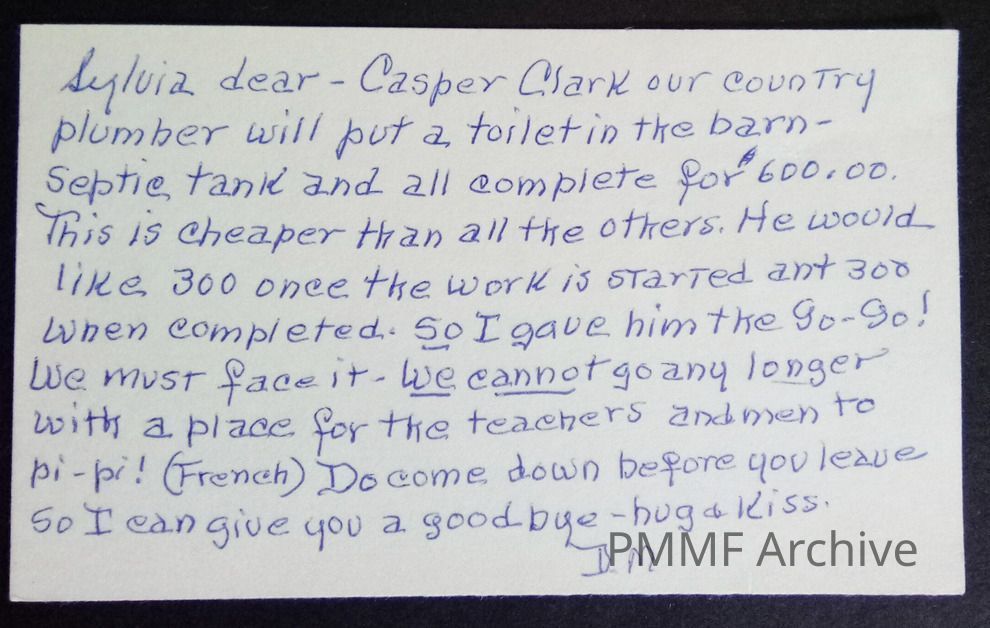 Sylvia dear - Casper Clark our country
plumber will put a toilet in the barn-
Septic tank and all complete for $600.00.
This is cheaper than all the others. He would
like 300 once the work is started ant 300
when completed. So I gave him the go-go!
We must face it - We cannot go any longer
with a place for the teachers and men to
pi-pi! (French) Do come down before you leave
so I can give you a good bye - hug & Kiss.
D.M
PMMF Archive